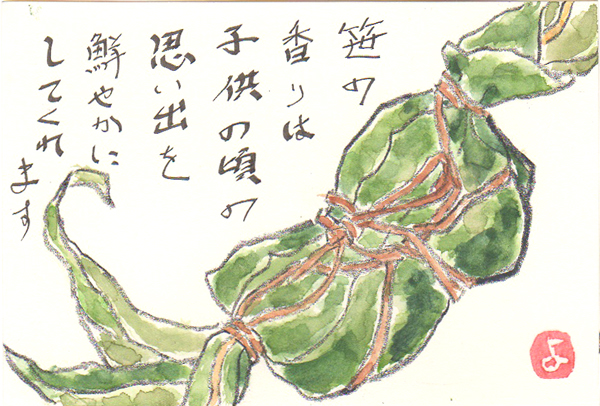 笹の
香りは
子供の頃の
思い出を
鮮やかに
してくれ
ます
よ